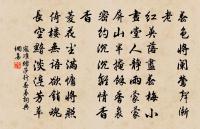 春色將闌鶯聲漸
老
紅英落盡青梅小
畫堂人靜雨濛濛
屏山半掩餘香裊
密約沉沉離情杳
杳
菱花塵滿慵將照
倚樓無語欲銷魂
長空黯淡連芳草